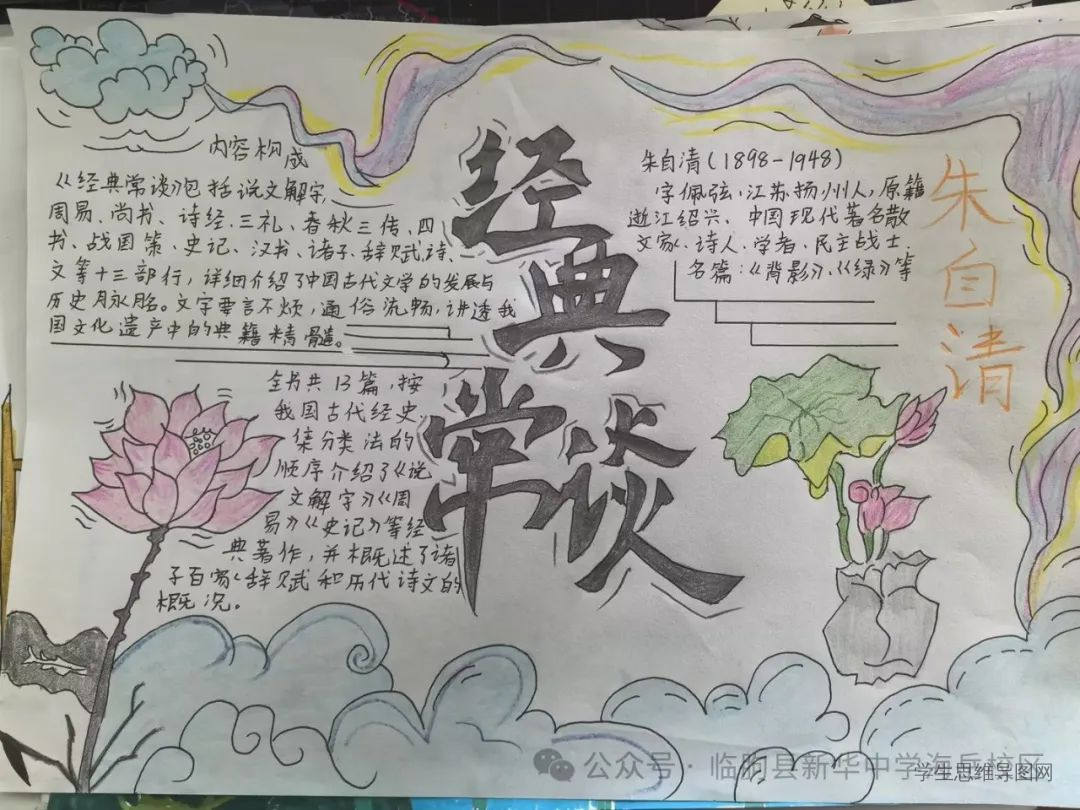 内容构成
《经典常谈》包括说文解字,
周易、尚书、诗经、三礼、春秋三传、四
书、战国策、史记、汉书、诸子、辞赋、诗、
文等十三部行,详细介绍了中国古代文学的发展与
历史脉络。文字要言不烦,通俗流畅,讲透我
国文化遗产中的典籍精髓。
全书共13篇,按
我国古代经史、
集分类法的
顺序介绍了《说
文解字》《周
易》《史记》等经
典著作,并概述了诸
子百家、辞赋和历代诗文的
概况。
经典常谈
朱自清(1898-1948)
字佩弦、江苏扬州人,原籍
浙江绍兴、中国现代著名散
文家、诗人、学者、民主战士.
名篇:《背影》、《绿》等
朱自清
公众号·临朐县新华中学海岳校区
学生思维导图网